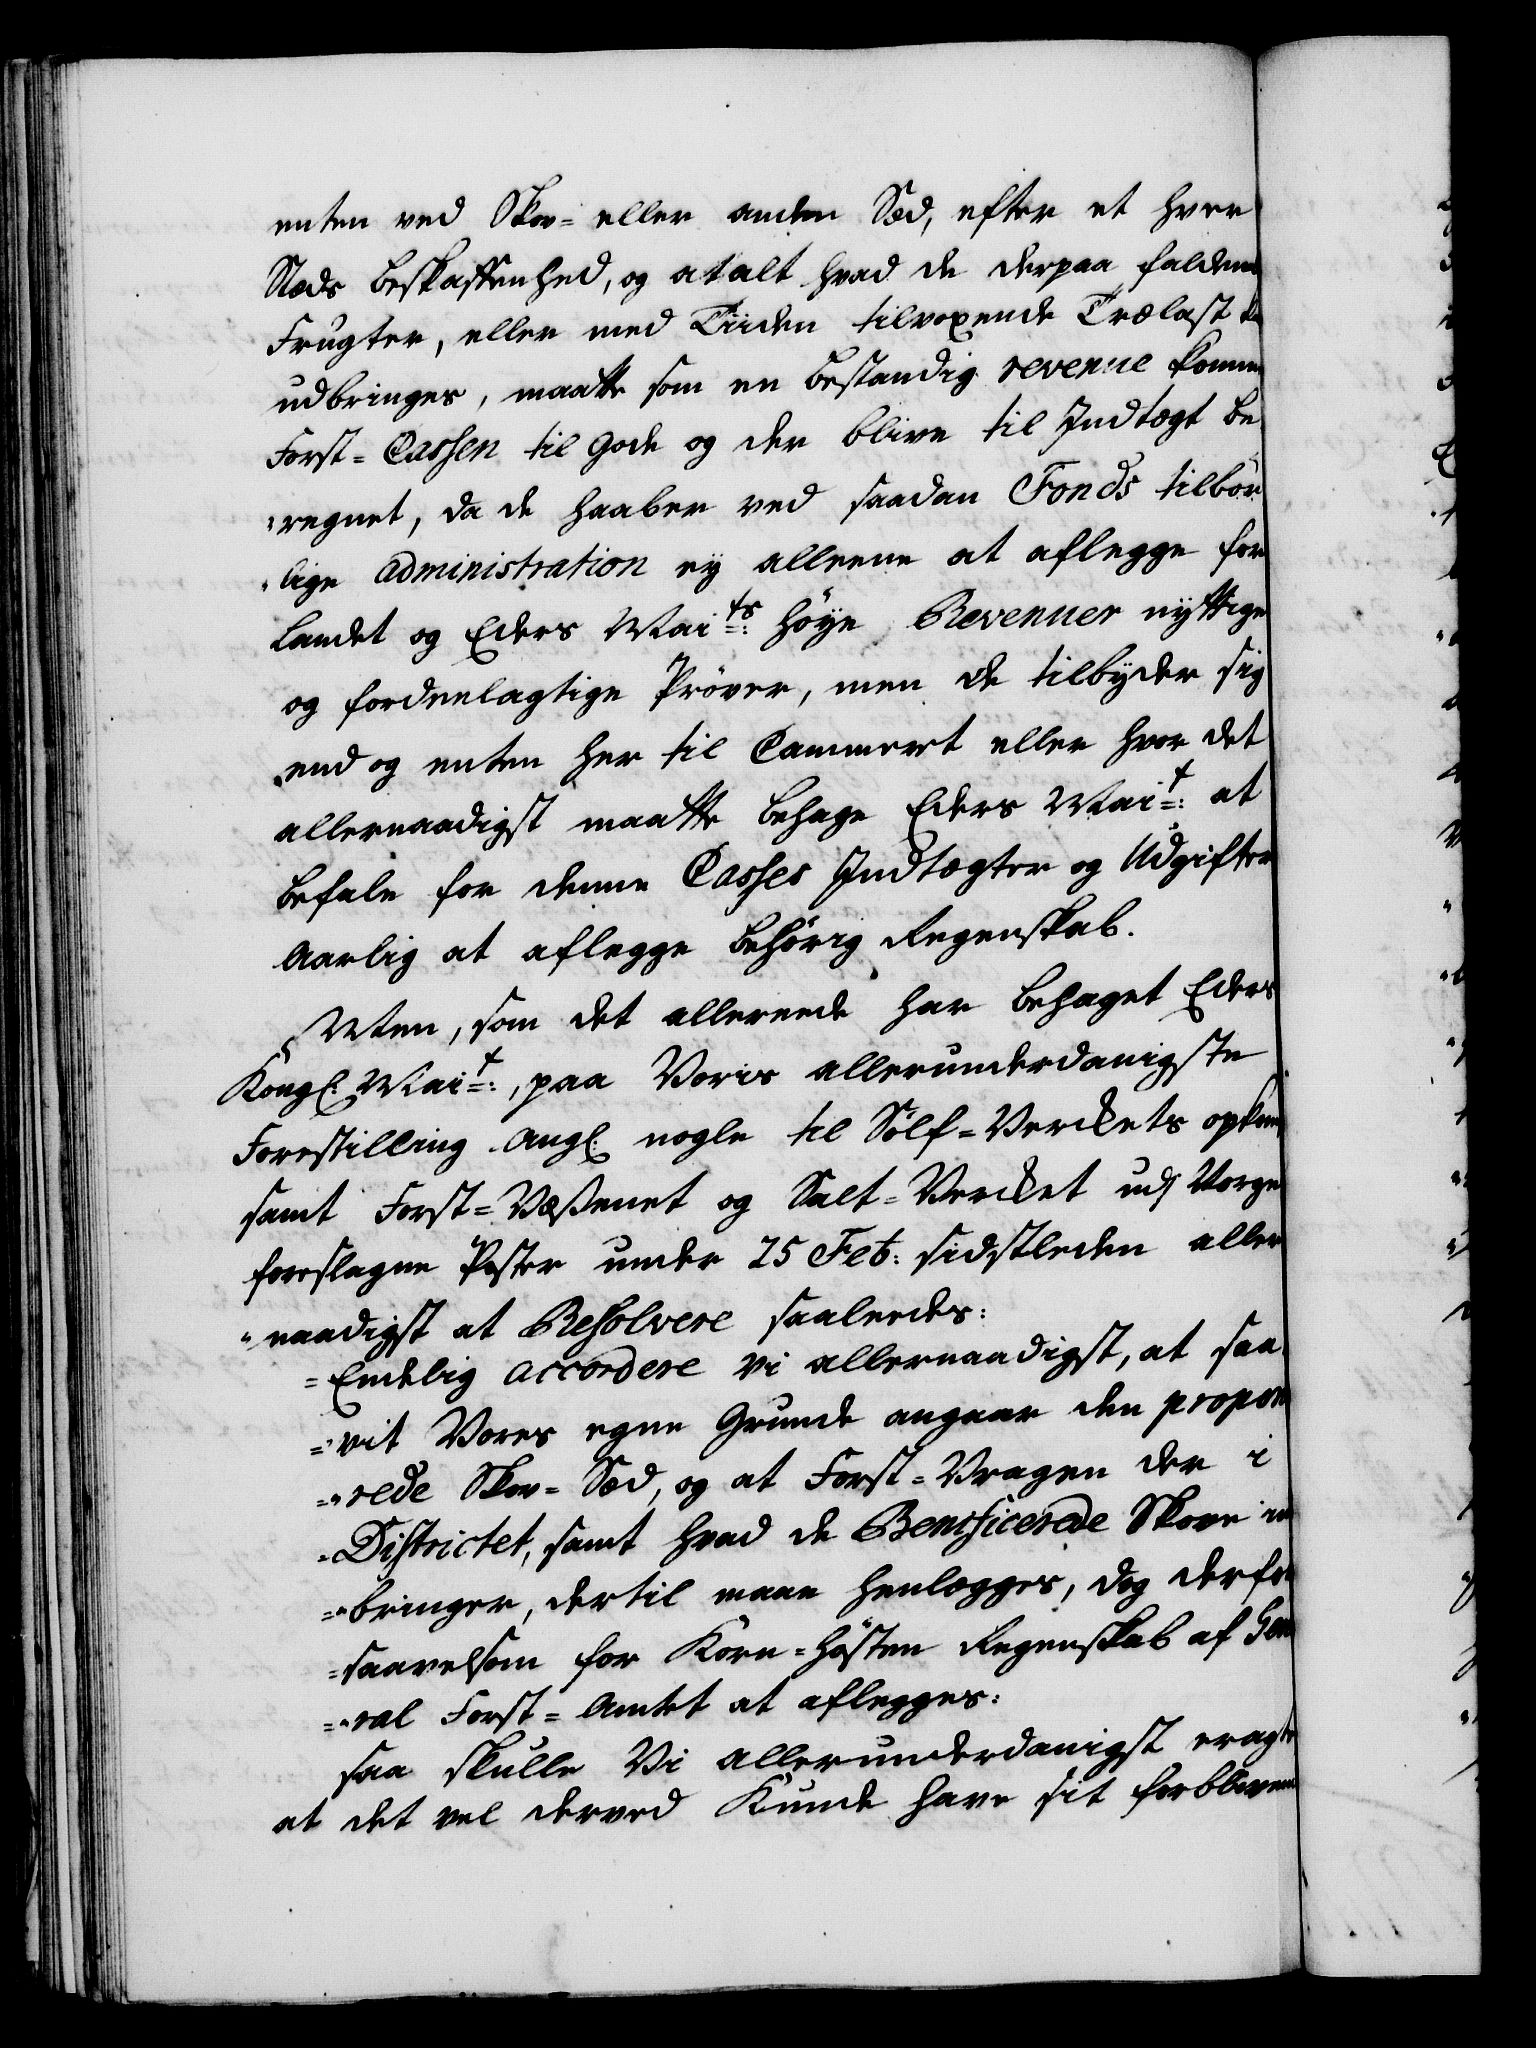 enten ved Skov= eller anden Sæd, efter et hver
Stæds beskaffenhed, og at alt hvad de derpaa faldende
Frugter, eller med Tiiden tilvoxende Trælast
udbringes, maatte som en bestandig revenue komme
Forst=Cassen til gode og der blive til Indtægt be
"regnet, da de haaber ved saadan Fonds tilbör
"lige administration ey alleene at aflegge for
Landet og Eders Mai^ts=: høye Revenuer nyttige
og fordeelagtige Prøver, men de tilbyder sig
end og enten her til Cammeret eller hvor det
allernaadigst maatte behage Eders Mai^t=: at
befale for denne Casses Indtægter og Udgifter
Aarlig at aflegge behörig Regenskab.
Men, som det allereede har behaget Eders
Kongl: Mai^t=:, paa Voris allerunderdanigste
Forestilling angl: nogle til Sölf=Verckets opkomst
samt Forst=Væsenet og Salt=Vercket udj Norge
foreslagne Poster under 25 Feb: sidstleden aller
"naadigst at Resolvere saaleedes:
=Endelig accordere Vi allernaadigst, at saa
="vit Vores egne Grunde angaar den propone
="rede Skov= Sæd, og at Forst=Vragen der i
=Districtet, samt hvad de Beneficerede Skove ind
="bringer, dertil maae henlægges, dog derfor
=saavelsom for Korn=Høsten Regenskab af Gene
="ral Forst=Amtet at aflegges:
saa skulle Vi allerunderdanigst eragte
at det vel derved Kunde have sit forblivende